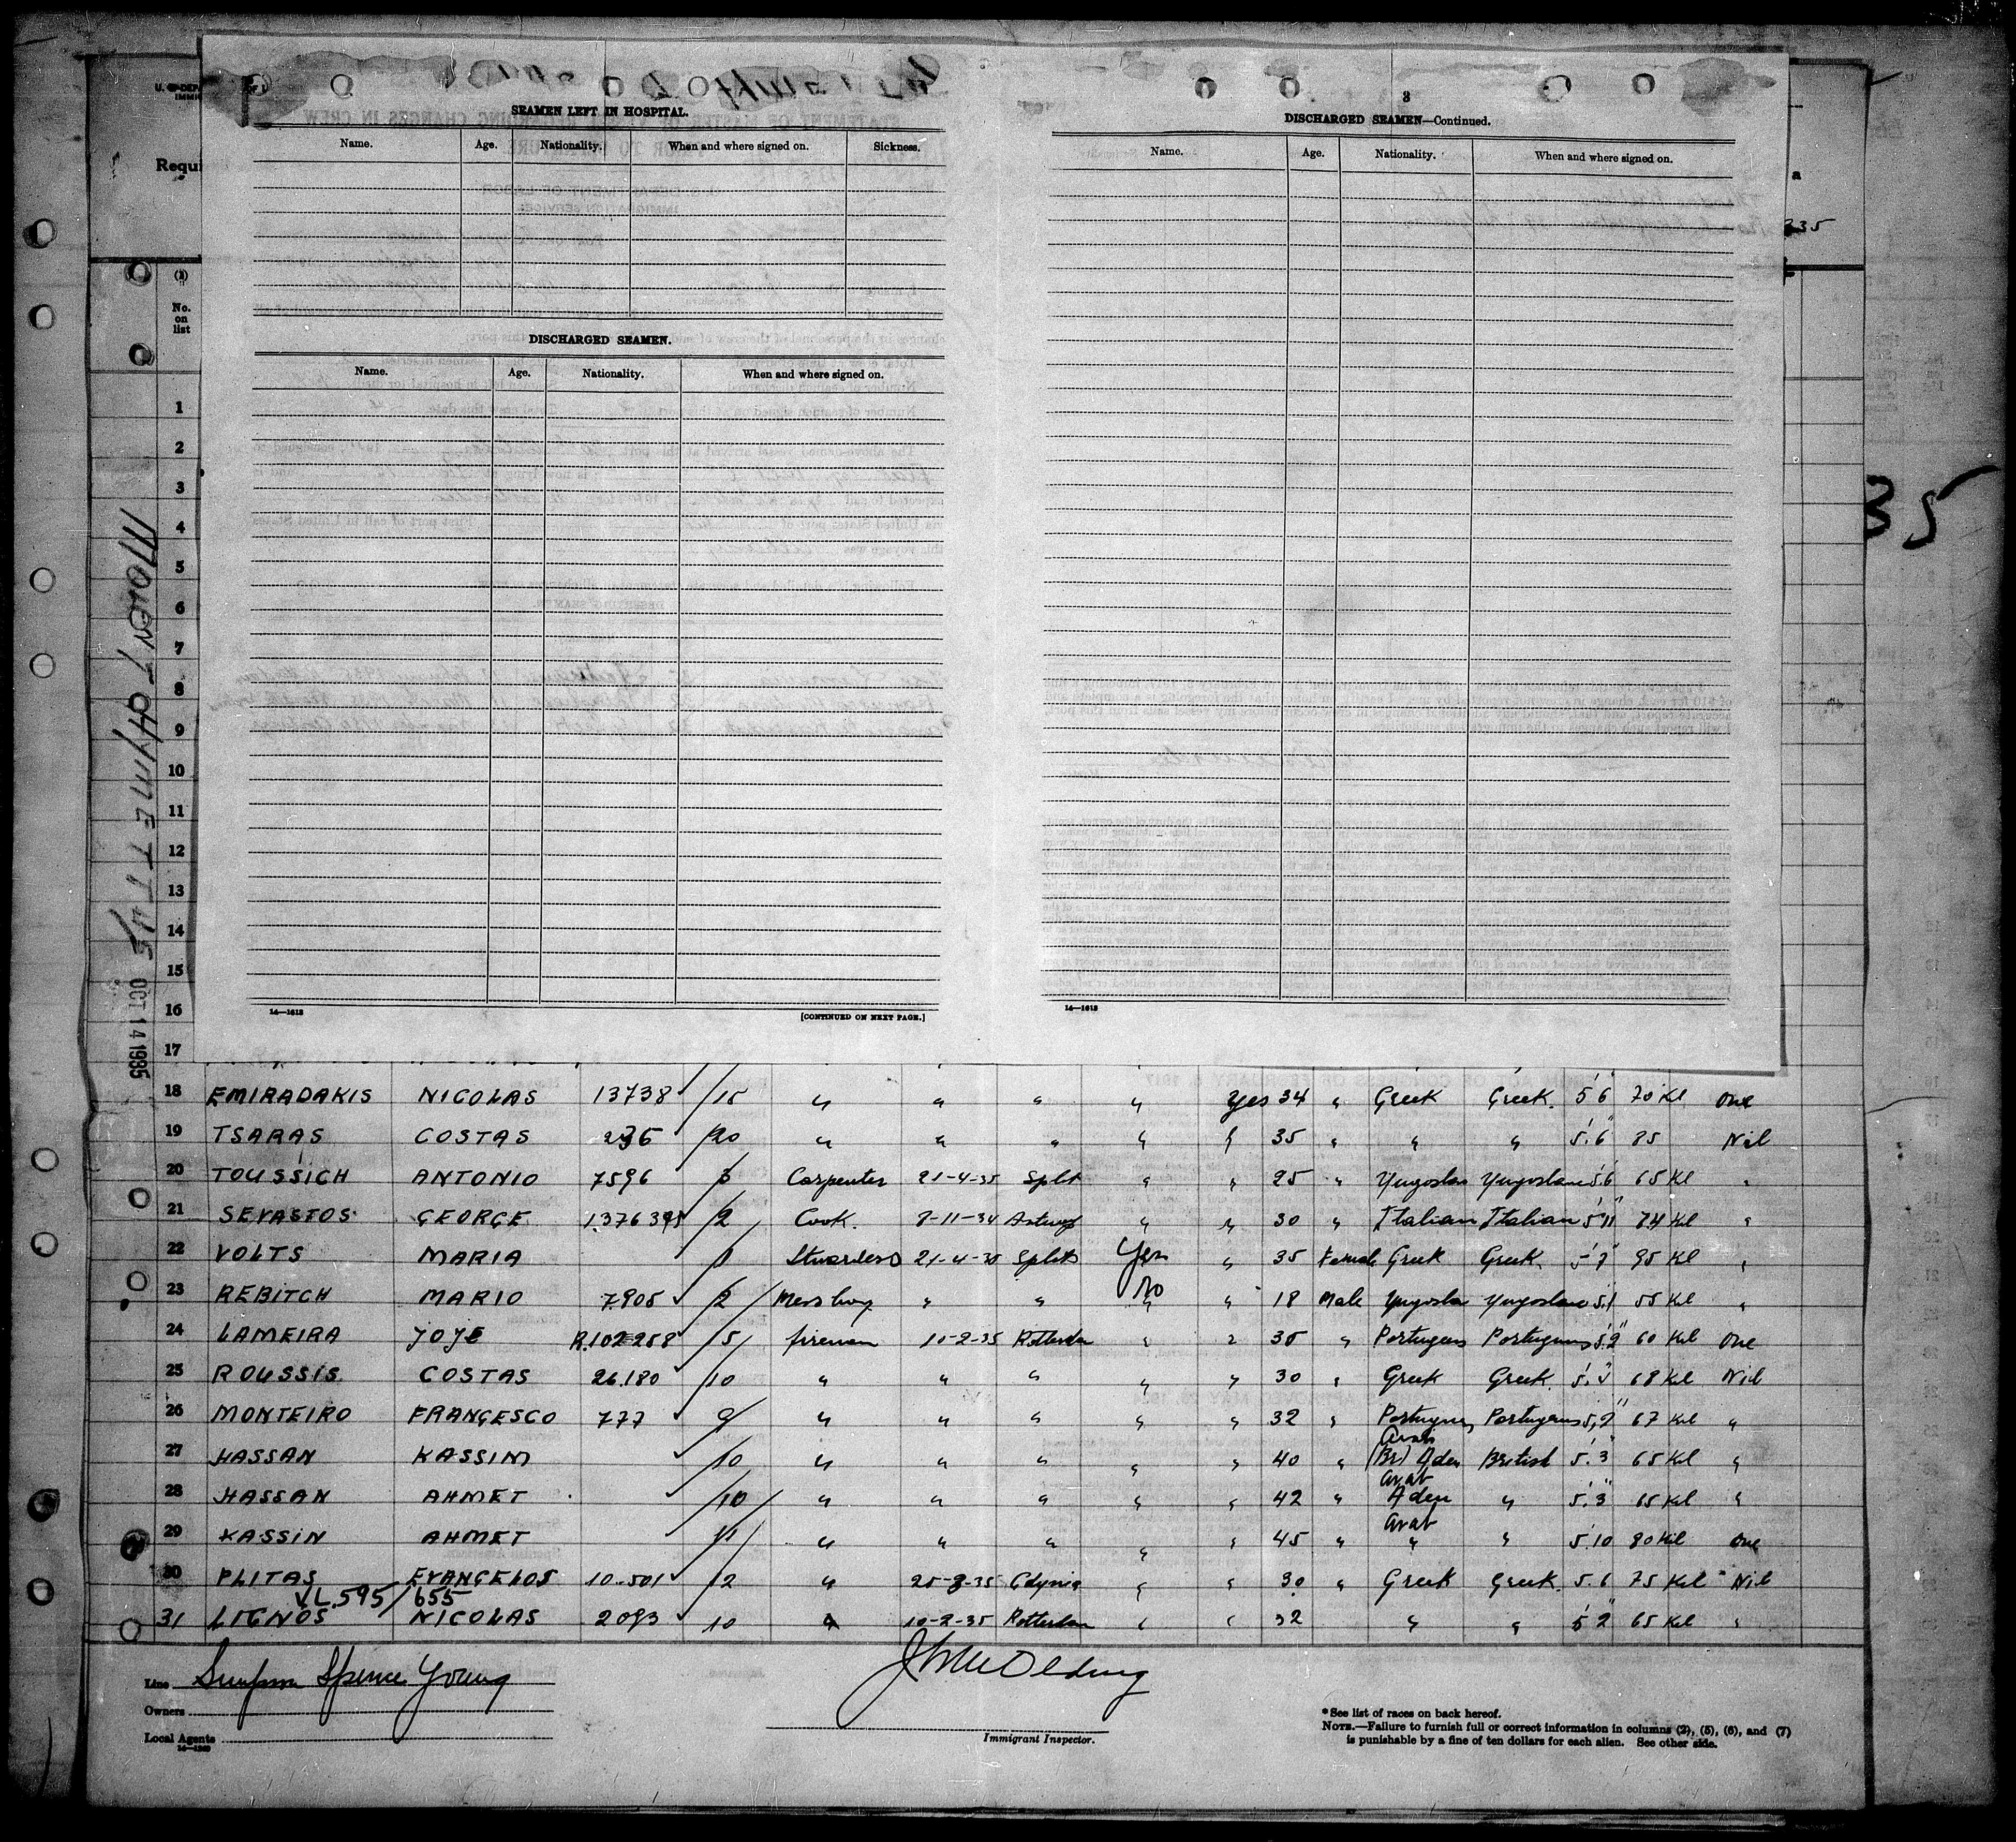 U. S. DEP
IMMIG
Requi
SEAMEN LEFT IN HOSPITAL.
Name. Age. Nationality. When and where signed on. Sickness.
DISCHARGED SEAMEN.
Name. Age. Nationality. When and where signed on.
14—1613
[CONTINUED ON NEXT PAGE.]
3
DISCHARGED SEAMEN—Continued.
Name. Age. Nationality. When and where signed on.
14—1613
a
35
35
MOUNT HYMETTUS
OCT 14 1935
(1)
No. on list
1
2
3
4
5
6
7
8
9
10
11
12
13
14
15
16
17
18 EMIRADAKIS NICOLAS 13738 ✓ 15 " " " " Yes 34 " Greek Greek. 5'6 70 Kl One
19 TSARAS COSTAS 236 20 " " " " " 35 " " " 5'.6" 85 Nil
20 TOUSSICH ANTONIO 7596 3 Carpenter 21-4-35 Split " " 25 " Yugoslav Yugoslave 5'6 65 Kl "
21 SEVASTOS GEORGE 1376395 2 Cook. 8-11-34 Antwerp " " 30 " Italian Italian 5'11" 84 Kil "
22 VOLTS MARIA 1 Stuardess 21-4-35 Split Yes " 35 Female Greek Greek. 95 Kil "
No
23 REBITCH MARIO 7905 ✓ 2 Mess boy " " " " 18 Male Yugosla Yugoslave 5'.1 55 Kil "
24 LAMEIRA JOJE R.102258 ✓ 5 fireman 10-2-35 Rotterdam " " 35 " Portugues Portugues 5'.2" 60 Kil One
25 ROUSSIS. COSTAS 26.180 ✓ 10 " " " " " 30 " Greek Greek. 68 Kil Nil
26 MONTEIRO FRANCESCO 777 ✓ 9 " " " " " 32 " Portugues Portugues 5,2" 67 Kil "
Arab
27 HASSAN KASSIM ✓ 10 " " " " " 40 " (Br) Aden British 5'.3" 65 Kil "
Arab
28 HASSAN AHMET ✓ 10 " " " " " 42 " Aden " 5'.3" 65 Kil "
Arab
29 KASSIN AHMET ✓ 11 " " " " " 45 " " " 5'.10 80 Kil One
30 PLITAS EVANGELOS 10.501 ✓ 2 " 25-8-35 Gdynia " " 30 " Greek Greek. 5.6 75 Kil " Nil
VL.595/655
31 LIGNOS NICOLAS 2093 ✓ 10 " 10-2-35 Rotterdam " " 32 " " 5'2" 65 Kil "
Line Simpson Spence Young
Owners
Local Agents
14—1240
Immigrant Inspector.
*See list of races on back hereof.
NOTE.—Failure to furnish full or correct information in columns (2), (5), (6), and (7)
is punishable by a fine of ten dollars for each alien. See other side.